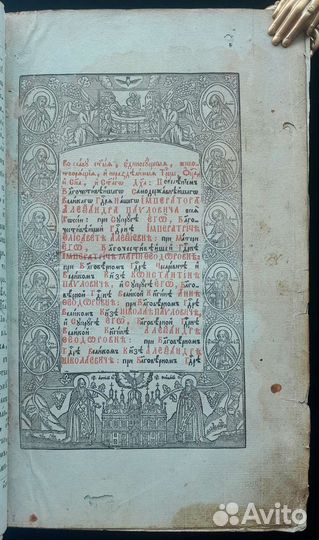 Во славу ст҃ыѧ, є҆диносꙋщныѧ, живо-
творѧщїѧ, и҆ нераздѣлимыѧ Трⷪ҇цы, Ѻ҆ц҃а
и҆ Сн҃а, и҆ Ст҃агѡ Дх҃а: Повелѣнїемъ
Благочестивѣйшагѡ Самодержавнѣйшагѡ
Великагѡ Гдⷭ҇рѧ Нашегѡ ИМПЕРАТОРА
АЛЕѮАНДРА ПАУЛОВИЧА всеѧ
Рѡссїи: при Сꙋпрꙋгѣ ЕГѠ, Благо-
честивѣйшей Гдⷭ҇рнѣ ИМПЕРАТРИЦѢ
ЕЛИСАВЕТѢ АЛЕѮІЕВНѢ: при Матери
ЕГѠ, Благочестивѣйшей Гдⷭ҇рнѣ
ИМПЕРАТРИЦѢ МАРІИ ѲЕОДѠРОВНѢ:
при Благовѣрномъ Гдⷭ҇рѣ Цесаревичѣ и҆
Великомъ Кн҃зѣ КѠНСТАНТІНѢ
ПАУЛОВИЧѢ, и҆ Сꙋпрꙋгѣ ЕГѠ, Благо-
вѣрной Гдⷭ҇рнѣ Великой Кнгинѣ АННѢ
ѲЕОДѠРОВНѢ: при Благовѣрномъ Гдⷭ҇рѣ
Великомъ Кн҃зѣ НІКОЛАѢ ПАУЛОВИЧѢ,
и҆ Сꙋпрꙋгѣ ЕГѠ, Благовѣрной Гдⷭ҇рнѣ
Великой Кнгинѣ АЛЕѮАНДРѢ
ѲЕОДѠРОВНѢ: при Благовѣрномъ
Гдⷭ҇рѣ Великомъ Кн҃зѣ АЛЕѮАНДРѢ
НІКОЛАЕВИЧѢ: при Благовѣрномъ Гдⷭ҇рѣ
Avito